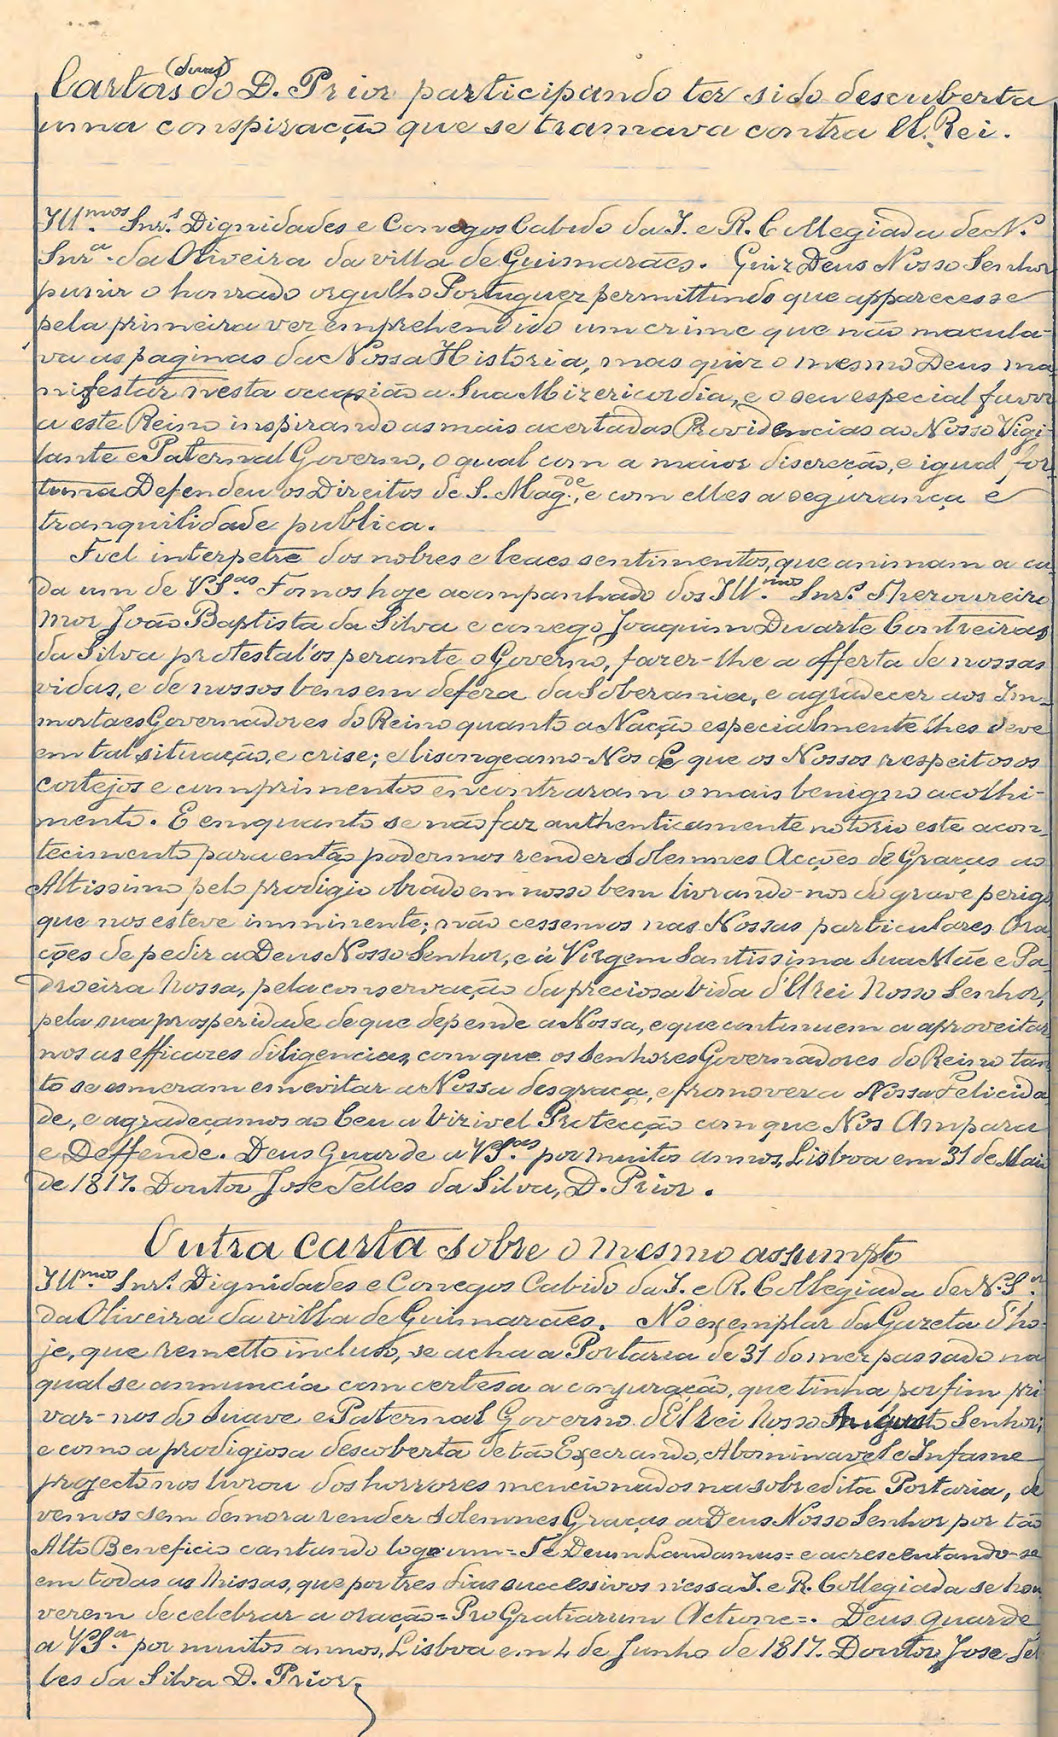 (duas)
Cartas do D. Prior participando ter sido descuberta
uma conspiração que se tramava contra El-Rei.
Illmos Snrs Dignidades e Conegos Cabido da I. e R. Collegiada de N.
Snra. da Oliveira da villa de Guimarães. Quiz Deus Nosso Senhor
punir o honrado orgulho Portuguez permittindo que apparecesse
pela primeira vez emprehendido um crime que não macula-
va as paginas da Nossa Historia, mas quiz o mesmo Deus ma
nifestar nesta occasião a Sua Mizericordia, e o seu especial favor
a este Reino inspirando as mais acertadas Providencias ao Nosso Vigi-
lante e Paternal Governo, o qual com a maior discreção, e igual for
tuna Defendeu os Direitos de S. Magde., e com elles a segurança e
tranquilidade publica.
Fiel interpetre dos nobres e leaes sentimentos, que animam a ca
da um de VSas. Fomos hoje acompanhado dos Illmos Snrs. Thezoureiro
mor João Baptista da Silva e conego Joaquim Duarte Contreiras
da Silva protestal'os perante o Governo, fazer-lhe a offerta de nossas
vidas, e de nossos bens em defeza da Soberania, e agradecer aos Im-
mortaes Governadores do Reino quanto a Nação especialmente lhes deve
em tal situação, e crise; e lisongeamo-Nos de que os Nossos respeitosos
cortejos e cumprimentos encontraram o mais benigno acolhi-
mento. E emquanto se não faz authenticamente notorio este acon-
tecimento para então podermos render Solemnes Acções de Graças ao
Altissimo pelo prodigio obrado em nosso bem livrando-nos do grave perigo
que nos esteve imminente; não cessemos nas Nossas particulares Ora
ções de pedir a Deus Nosso Senhor, e á Virgem Santissima Sua Mãe e Pa
droeira Nossa, pela conservação da preciosa vida d'Elrei Nosso Senhor,
pela sua prosperidade de que depende a Nossa, e que continuem a aproveitar
nos as efficazes diligencias, com que os Senhores Governadores do Reino tan
to se esmeram em evitar a Nossa desgraça, e promover a Nossa Felicida
de, e agradeçamos ao Ceu a Vizivel Protecção com que Nos Ampara
e Deffende. Deus Guarde a VSas. por muitos annos, Lisboa em 31 de Maio
de 1817. Doutor Jose Telles da Silva, D. Prior.
Outra carta sobre o mesmo assumpto
Illmos Snrs. Dignidades e Conegos Cabido da I. e R. Collegiada de N. Sra
da Oliveira da villa de Guimarães. No exemplar da Gazeta d'ho-
je, que remetto incluso, se acha a Portaria de 31 do mez passado na
qual se annuncia com certesa a conjuração, que tinha por fim pri
var-nos do Suave e Paternal Governo d'Elrei Nosso Augusto Senhor;
e como a prodigiosa descoberta de tão Execrando, Abominavel e Infame
projecto nos livrou dos horrores mencionados na sobredita Portaria, de
vemos sem demora render Solemnes Graças a Deus Nosso Senhor por tão
Alto Beneficio cantando logo um = Te Deum Laudamus = e acrescentando-se
em todas as Missas, que por tres dias successivos n'essa I. e R. Collegiada se hou
verem de celebrar a oração = Pro Gratiarum Actione =. Deus guarde
a VSa. por muitos annos, Lisboa em 4 de Junho de 1817. Doutor Jose Tel
les da Silva D. Prior,